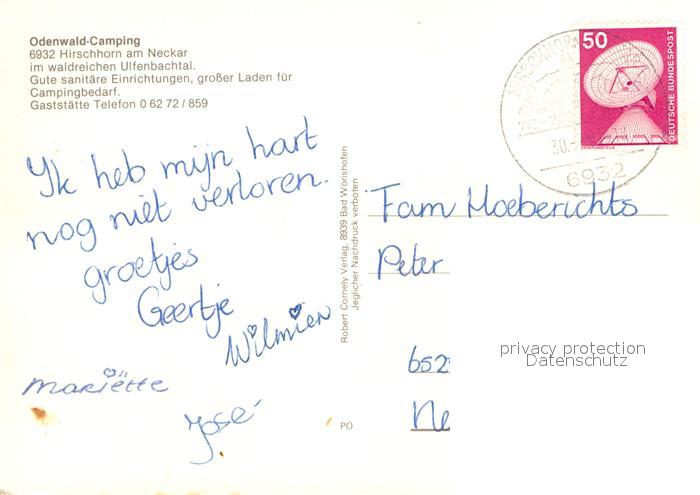 Odenwald-Camping
6932 Hirschhorn am Neckar
im waldreichen Ulfenbachtal.
Gute sanitäre Einrichtungen, großer Laden für
Campingbedarf.
Gaststätte Telefon 0 62 72 / 859
Ik heb mijn hart
nog niet verloren.
groetjes
Geertje
Wilmien
Mariëtte
José
Robert Cornely Verlag, 8939 Bad Wörishofen
Jeglicher Nachdruck verboten
PO
50
DEUTSCHE BUNDESPOST
HIRSCHHORN
30.
6932
Fam Hoeberichts
Peter
652
Ne
privacy protection
Datenschutz